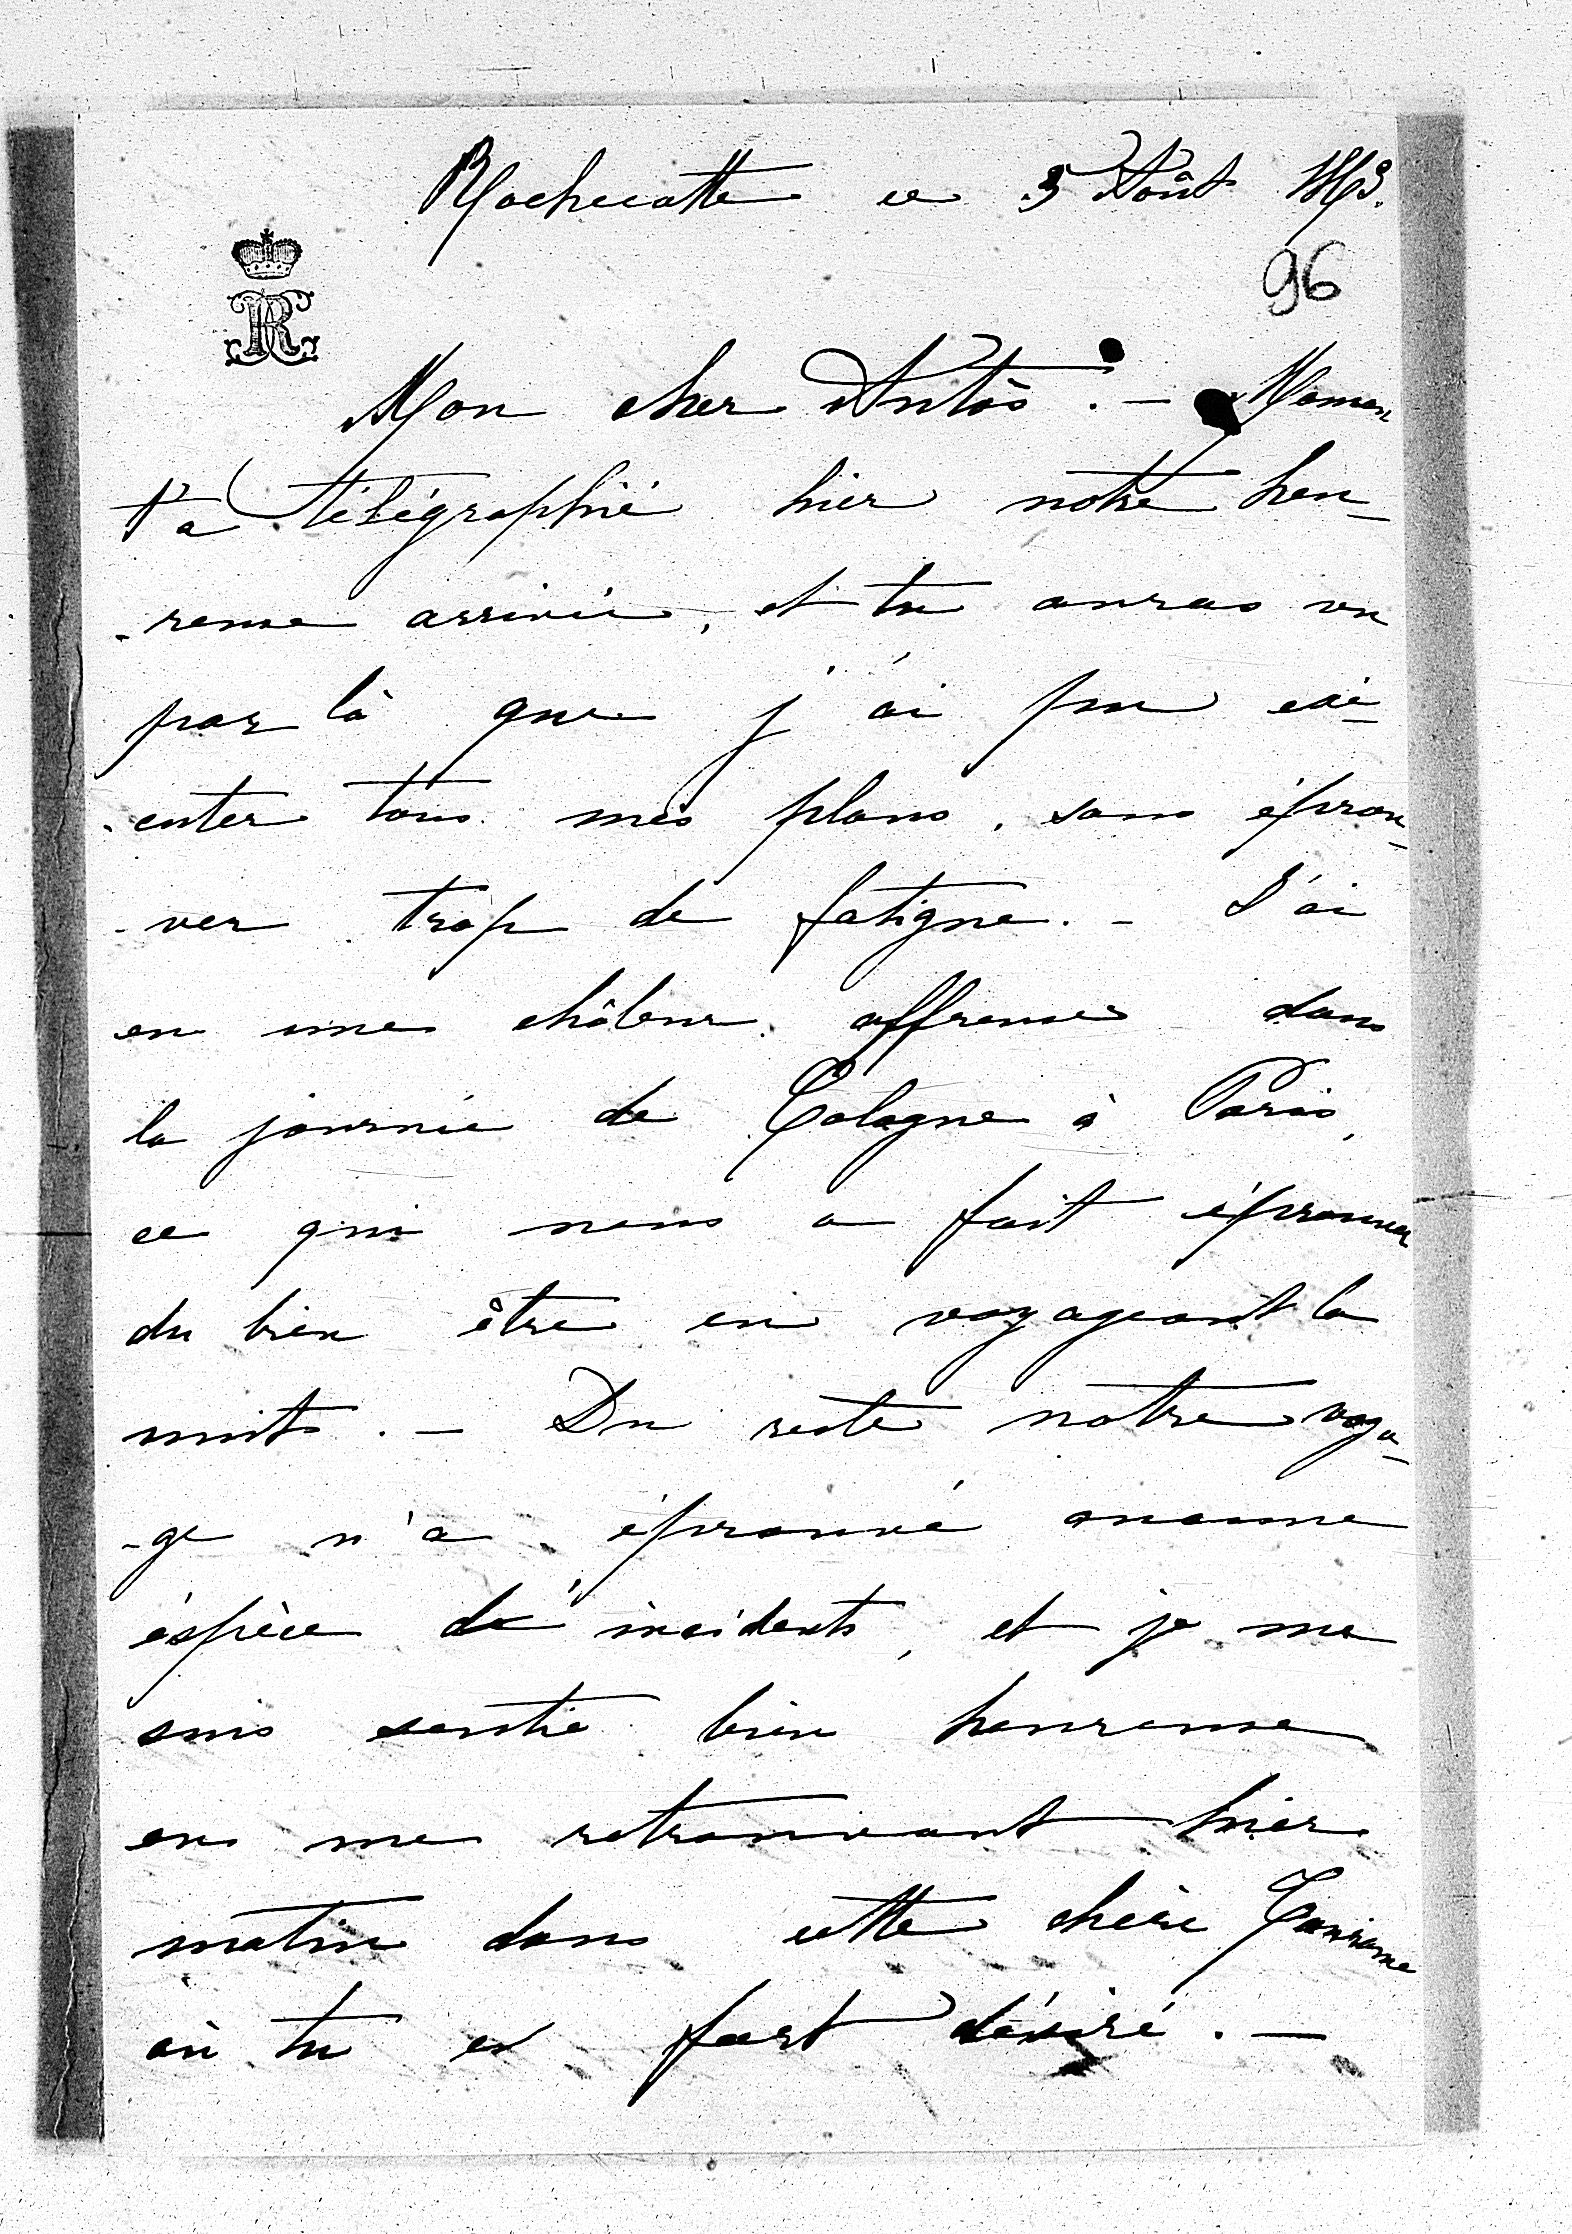 Rochecotte ce 5 Août
96
Mon cher Antos. – Maman
t'a télégraphié hier notre heu-
-reuse arrivée, et tu auras vu
par là que j'ai pu exé-
-cuter tous mes plans, sans éprou-
-ver trop de fatigue. – J'ai
eu une châleur affreuse dans
la journée de Cologne à Paris,
ce qui nous a fait éprouver
du bien être en voyageant la
nuit. – Du reste notre voya-
-ge n'a éprouvé aucune
éspèce d'incidents, et je me
suis sentie bien heureuse
en me retrouvant hier
matin dans cette chère Touraine
où tu es fort désiré. –